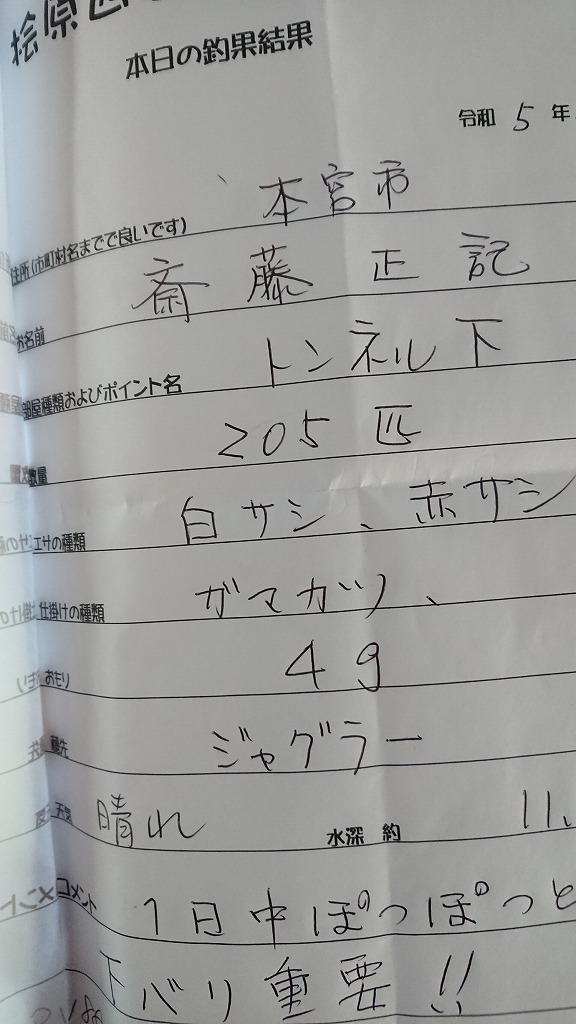 桧原
本日の釣果結果
令和 5 年
住所(市町村名までで良いです) 本宮市
お名前 斎藤 正記
部屋種類およびポイント名 トンネル下
数量 205 匹
エサの種類 白サシ、赤サシ
仕掛けの種類 ガマカツ、
おもり 4g
穂先 ジャグラー
天気 晴れ 水深 約 11.
コメント 1日中ぽつぽつと
下バリ重要!!